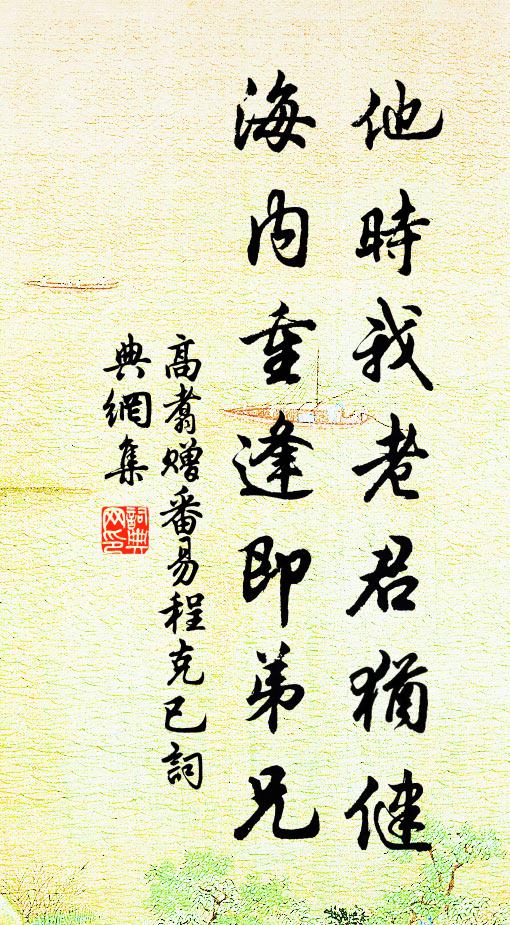 他時我老君猶健
海内重逢即弟兄
高翥赠番易程克已詞
典網集
詞典
网印